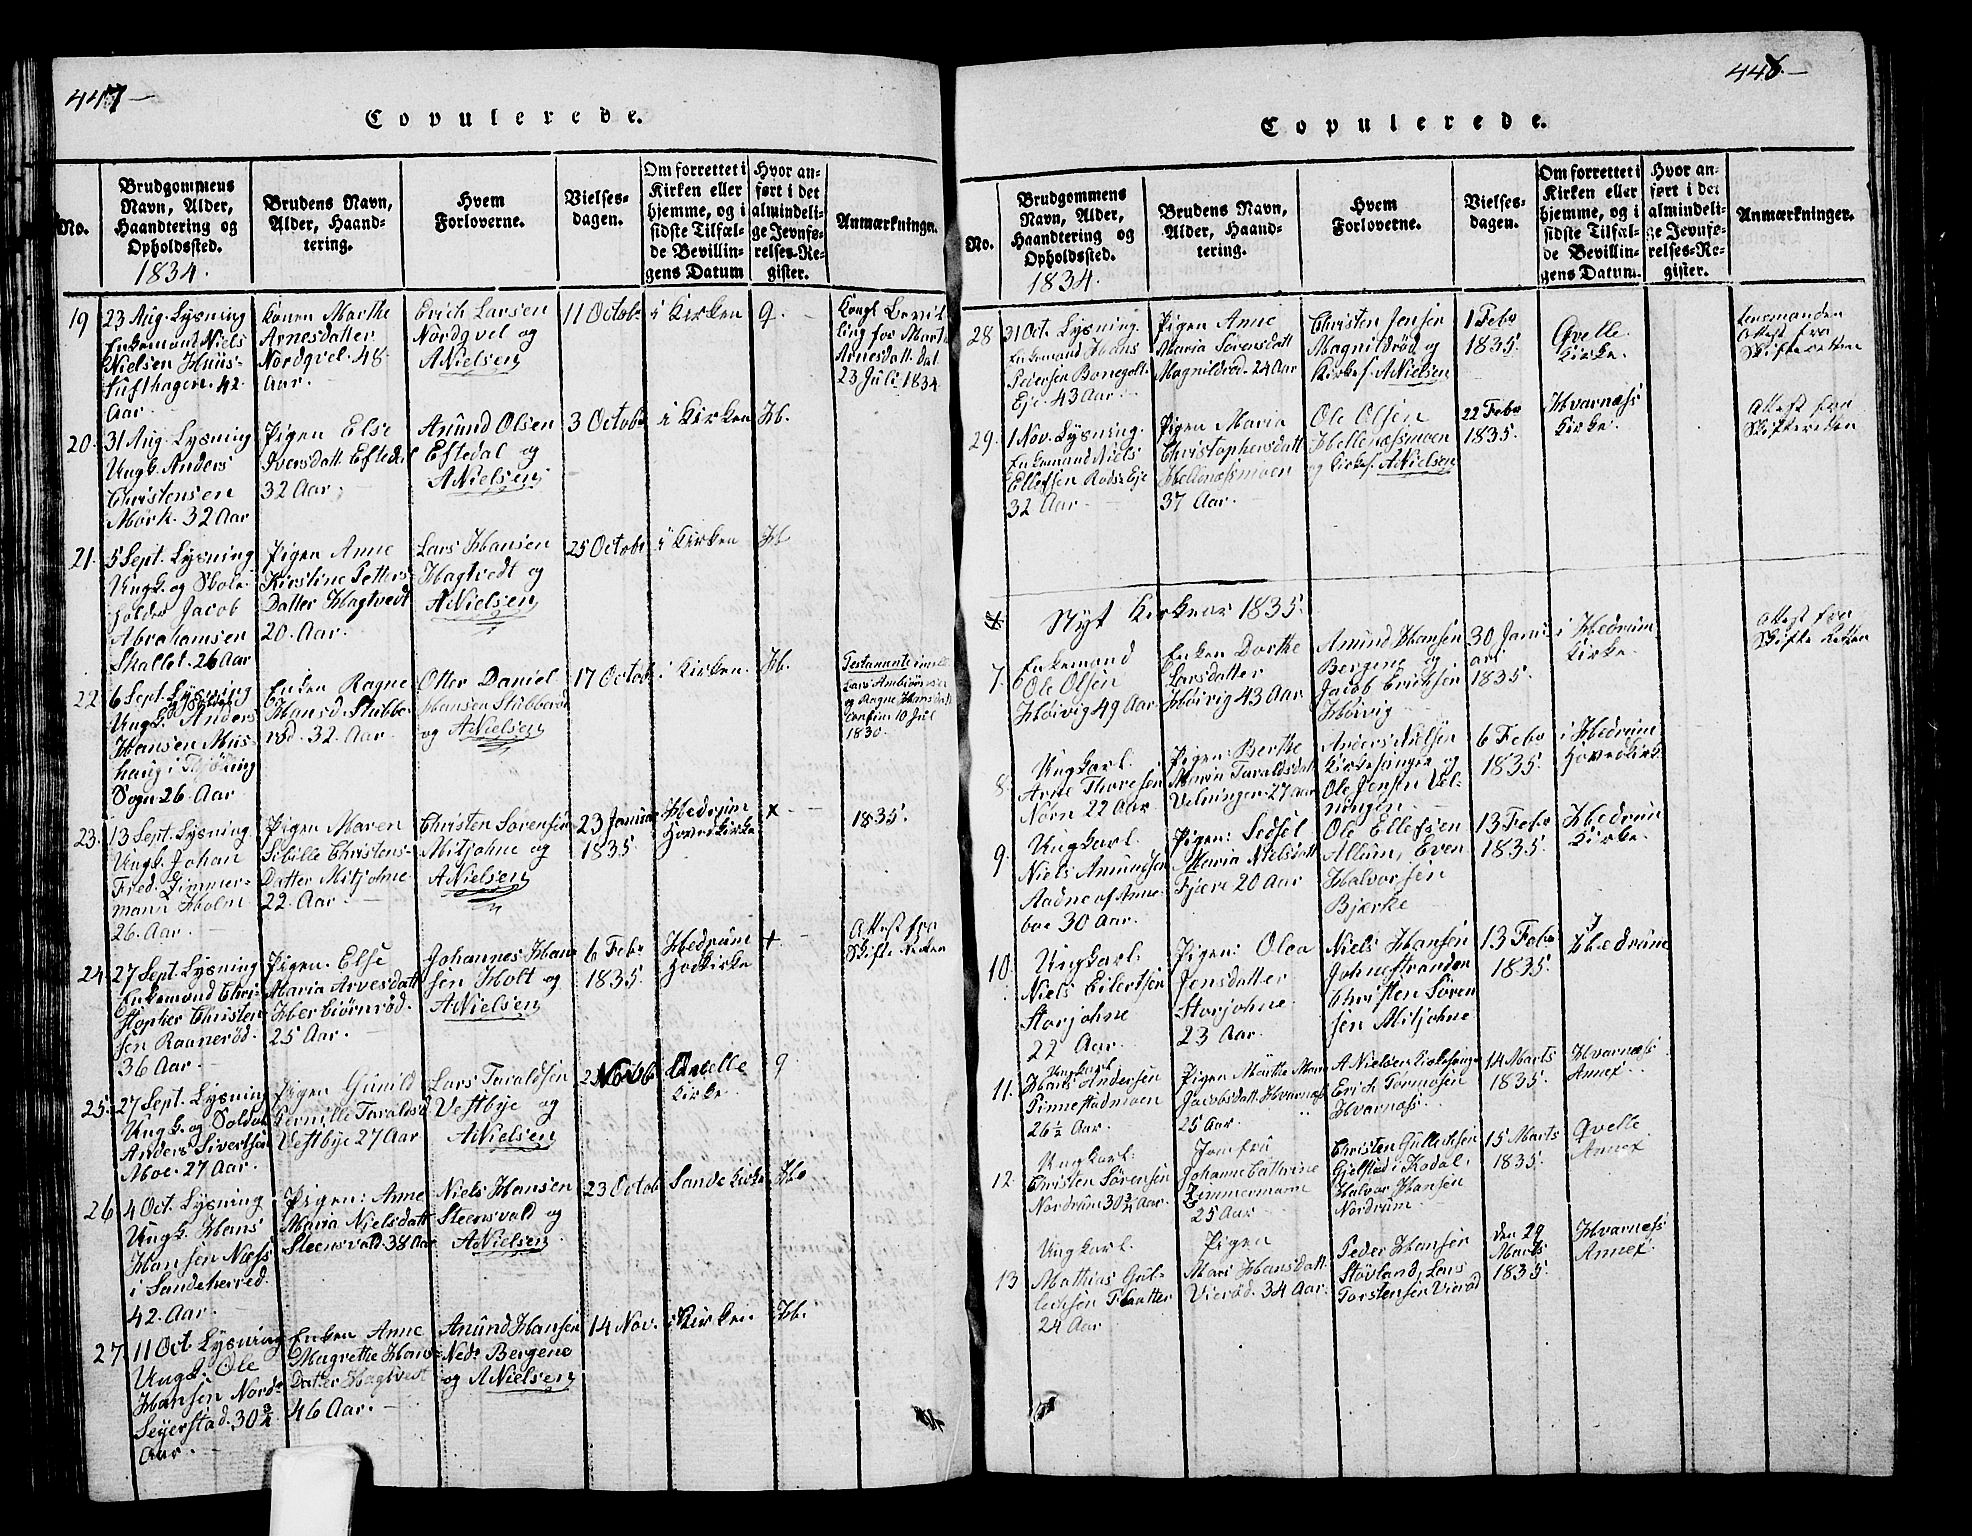 447—
Copulerede.
No.
Brudgommens
Navn, Alder,
Haandtering og
Opholdssted.
1834.
Brudens Navn,
Alder, Haand-
tering.
Hvem
Forloverne.
Vielses-
dagen.
Om forrettet i
Kirken eller
hjemme, og i
sidste Tilfæl-
de Bevillin-
gens Datum
Hvor an-
ført i det
almindeli-
ge Jevnfø-
relses-Re-
gister.
Anmærkninger.
19
23 Aug. Lysning
Enkemand Niels
Nielsen
42
Aar
Konen Marthe
Arnesdatter
Nordqvel. 48
Aar.
Erich Larsen
Nordqvel og
ANielsen
11 Octobr
i Kirken
9.
Kongl Bevil-
ling for Marte
Arnesdatt. dat
23 Juli 1834
20.
31 Aug. Lysning
Ungk. Anders
Christensen
Mørk. 32 Aar
Pigen Else
Iversdatt. Eftedal
32 Aar.
Amund Olsen
Eftedal og
ANielsen
3 Octobr
i Kirken
Hb.
21.
5 Sept. Lysning
Ungk. og Skole-
holder Jacob
Abrahamsen
Skallet. 26 Aar
Pigen Anne
Kirstine Petters-
Datter Hagtvedt
20. Aar.
Lars Hansen
Hagtvedt og
ANielsen
25 Octobr
i Kirken
Hb
22
6 Sept. Lysning
Ungk. Anders
Hansen Mus-
haug i Thjølling
Sogn 26 Aar
Enken Ragne
Hansd. Stubbe-
rød. 32. Aar.
Otter Daniel
Hansen Stubberød
og ANielsen
17 Octob
i Kirken.
Hb.
Lars Ambiørnsen
og Ragne Hansdatt
confirm 10 Jul
1830.
23.
13 Sept. Lysning
Ungk. Johan
Fred. Zimmer-
mann Holm
26. Aar.
Pigen Maren
Sibille Christens-
Datter Mitjohne
22. Aar.
Christen Sørensen
Mitjohne og
ANielsen
23 Janua
1835
Hedrum
Hovedkirke
x
1835.
24
27 Sept. Lysning
Enkemand Chri-
stopher Christen-
sen Raanerød.
36 Aar.
Pigen. Else
Maria Arvesdatt
Herbiørnrød.
25 Aar.
Johannes Han-
sen Holt og
ANielsen
6 Febr
1835
Hedrum
Hovkirke
+
Attest fra
Skifteretten
25.
27 Sept. Lysning
Ungk. og Soldat
Anders Sivertsen
Moe. 27 Aar.
Pigen Gunild
Pernille Taraldsd
Vestbye 27 Aar
Lars Taraldsen
Vestbye og
ANielsen
2 Novb
Qvelle
Kirke.
9
26
4 Oct. Lysning
Ungk. Hans
Hansen Næss
i Sandeherred.
42. Aar.
Pigen: Anne
Maria Nielsdatt
Steensvald. 38 Aar
Niels Hansen
Steensvald og
ANielsen
23 Octob
Sande Kirke
Hb
27
11 Oct. Lysning
Ungk. Ole
Hansen Nord-
Seyerstad. 30 3/4
Aar.
Enken Anne
Magrethe Hans-
Datter Hagtvedt
46 Aar.
Amund Hansen
Nedr Bergene
og ANielsen
14 Nov.
i Kirken.
Hb.
448.—
Copulerede.
No.
Brudgommens
Navn, Alder,
Haandtering og
Opholdssted.
1834.
Brudens Navn,
Alder, Haand-
tering.
Hvem
Forloverne.
Vielses-
dagen.
Om forrettet i
Kirken eller
hjemme, og i
sidste Tilfæl-
de Bevillin-
gens Datum.
Hvor an-
ført i det
almindeli-
ge Jevnfø-
relses-Re-
gister.
Anmærkninger.
28
31 Oct. Lysning.
Enkemand Hans
Pedersen Bonegolt-
Eje. 43 Aar.
Pigen Anne
Maria Sørensdatt
Magnildrød. 24 Aar
Christen Jensen
Magnildrød og
Kirkes. ANielsen
1 Febr
1835.
Qvelle
Kirke.
Lensmanden
Attest fra
Skifteretten
29.
1 Nov. Lysning.
Enkemand Niels
Ellefsen Røds-Eje
32 Aar.
Pigen Maria
Christophersdatt
Hellenæssmoen
37 Aar.
Ole Olsen
Hellenæssmoen
og Kirkes. ANielsen
22 Febr
1835.
Hvarnæss
Kirke.
Attest fra
Skifteretten
Nyt Kirkeaar 1835.
7.
Enkemand
Ole Olsen
Høivig 49 Aar
Enken Dorthe
Larsdatter
Høivig 43 Aar
Amund Hansen
Bergene og
Jacob Ericksen
Høivig
30 Janu-
ari
1835.
i Hedrum
Kirke.
Attest fra
Skifte Retten
8.
Ungkarl.
Arne Thoresen
Nørn 22 Aar
Pigen Berthe
Maria Taraldsdatt
Velninger. 27 Aar
Anders Nielsen
Kirkesanger og
Ole Jensen Vel-
ningen
6 Febr
1835.
i Hedrum
Hovedkirke
9.
Ungkarl.
Niels Amundsen
Aadne af Anne-
boe 30 Aar.
Pigen: Sedsel
Maria Nielsdatt
Fjære 20 Aar
Ole Ellefsen
Allum, Even
Halvorsen
Bjerke
13 Febr
1835.
Hedrum
Kirke.
10.
Ungkarl.
Niels Eilertsen
Storjohne
22 Aar.
Pigen: Olea
Jensdatter
Storjohne.
23 Aar.
Niels Hansen
Johnestranden
Christen Søren-
sen Mitjohne
13 Febr
1835.
I
Hedrum
11.
Ungkarl.
Hans Andersen
Pinnestadmoen
26 ½ Aar.
Pigen Marthe Marie
Jacobsdatt. Hvarnæss
25 Aar.
A Nielsen Kirkesanger
Erich Tormosen
Hvarnæss
14 Marts
1835.
Hvarnæss
Annex
12.
Ungkarl.
Christen Sørensen
Nordrum 30 ¾ Aar.
Jomfru
Johanne Cathrine
Zimmermann
25 Aar
Christen Gulliksen
Gjelstad i Kodal.
Halvor Hansen
Nordrum
15 Marts
1835.
Qvelle
Annex
13
Ungkarl.
Mathias Gul-
lichsen Flaatter
24 Aar
Pigen
Mari Hansdatt.
Vierød. 34 Aar.
Peder Hansen
Støvland, Lars
Torstensen Vierød
den 29
Marts
1835.
Hvarnæss
Annex.